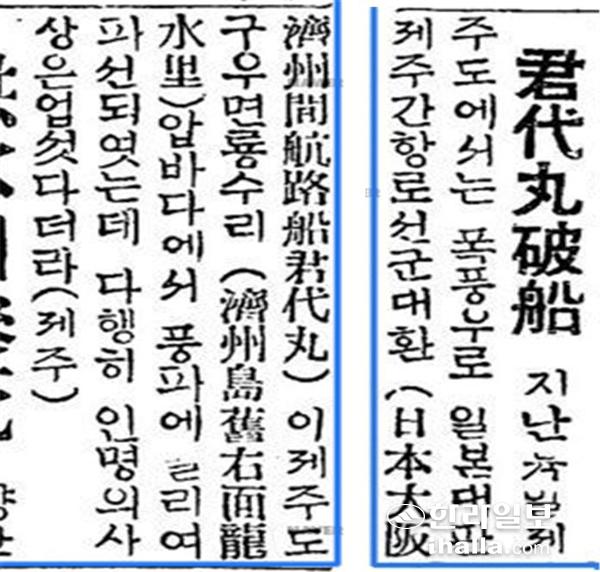 君代丸破船 지난 제
주도에서는 폭풍우로 일본대판
제주간항로선군대환 (日本大阪
濟州間航路船君代丸) 이제주도
구우면룡수리 (濟州島舊右面龍
水里)압바다에서 풍파에
파선되엿는데 다행히 인명의사
상은업섯다더라(제주)
한라일보
ihalla.com